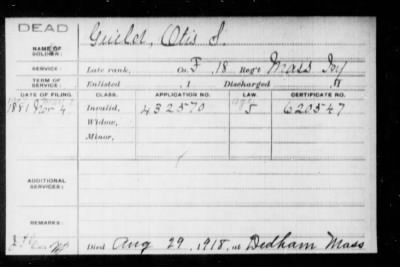 DEAD
NAME OF SOLDIER: Guild, Otis S.
SERVICE: Late rank, Co. F, 18 Reg't Mass Inf
TERM OF SERVICE: Enlisted , 1 Discharged , 1
DATE OF FILING. CLASS. APPLICATION NO. LAW. CERTIFICATE NO.
1881 Nov 4 Invalid, 432570 5 620547
Widow,
Minor,
ADDITIONAL SERVICES:
REMARKS:
Died Aug 29, 1918, at Dedham Mass